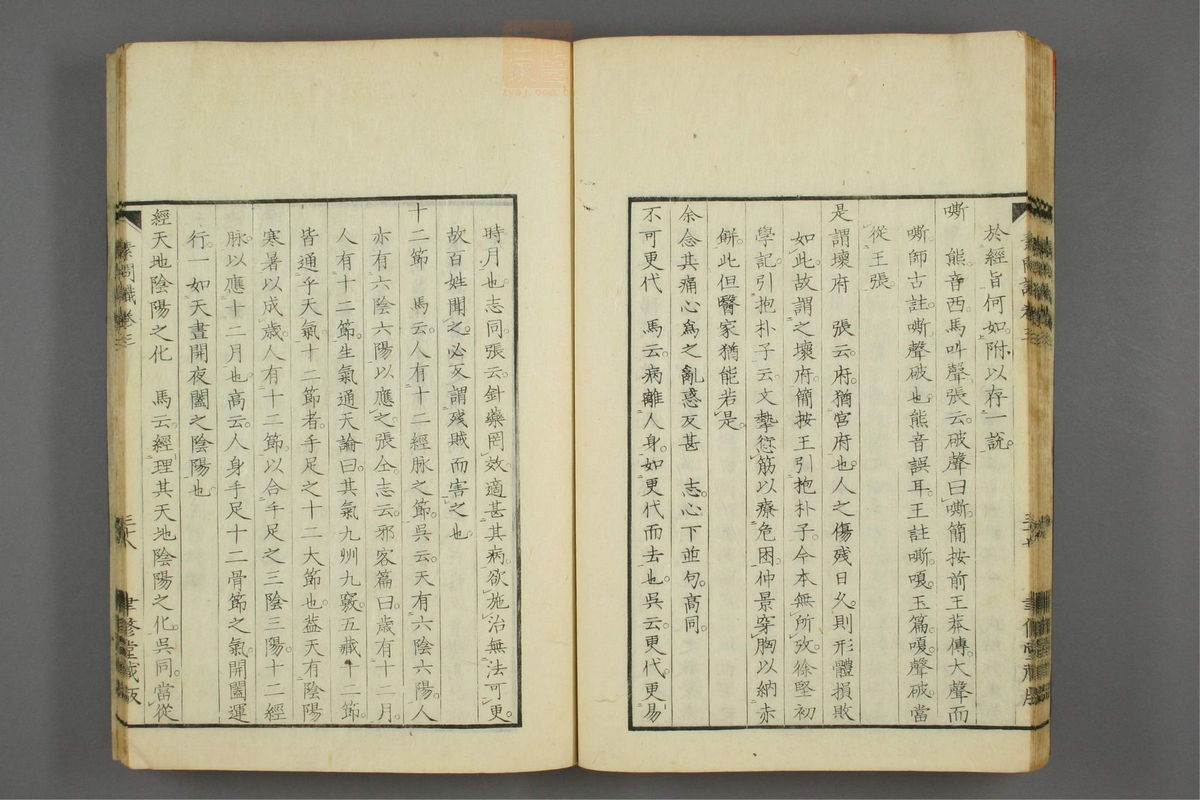 於經旨何如附以存一說
嘶　熊音西馬叫聲張云破聲曰嘶簡按前王莽傳大聲而
嘶師古註嘶聲破也熊音誤耳王註嘶嗄玉篇嗄聲破當
從王張
是謂壞府　張云府猶宮府也人之傷殘日久則形體損敗
如此故謂之壞府簡按王引抱朴子今本無所攷徐堅初
學記引抱朴子云文摯愆筋以療危困仲景穿胸以納赤
餅此但醫家猶能若是
余念其痛心爲之亂惑反甚　志心下並句高同
不可更代　馬云病離人身如更代而去也吳云更代更易
時月也志同張云針藥罔效適甚其病欲施治無法可更
故百姓聞之必反謂殘賊而害之也
十二節　馬云人有十二經脉之節吳云天有六陰六陽人
亦有六陰六陽以應之張仝志云邪客篇曰歲有十二月
人有十二節生氣通天論曰其氣九州九竅五藏十二節
皆通乎天氣十二節者手足之十二大節也葢天有陰陽
寒暑以成歲人有十二節以合手足之三陰三陽十二經
脉以應十二月也高云人身手足十二骨節之氣開闔運
行一如天晝開夜闔之陰陽也
經天地陰陽之化　馬云經理其天地陰陽之化吳同當從
素問識卷三
三十八
聿修堂藏版